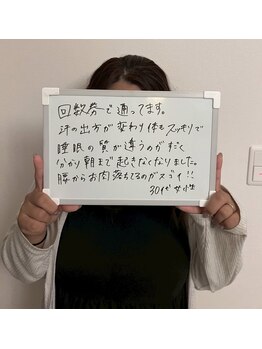 回数券で通ってます。
汗の出方が変わり体もスッキリで
睡眠の質が違うのがすごく
分かり朝まで起きなくなりました。
腰からお肉落ちてるのがスゴイ!!
30代 女性